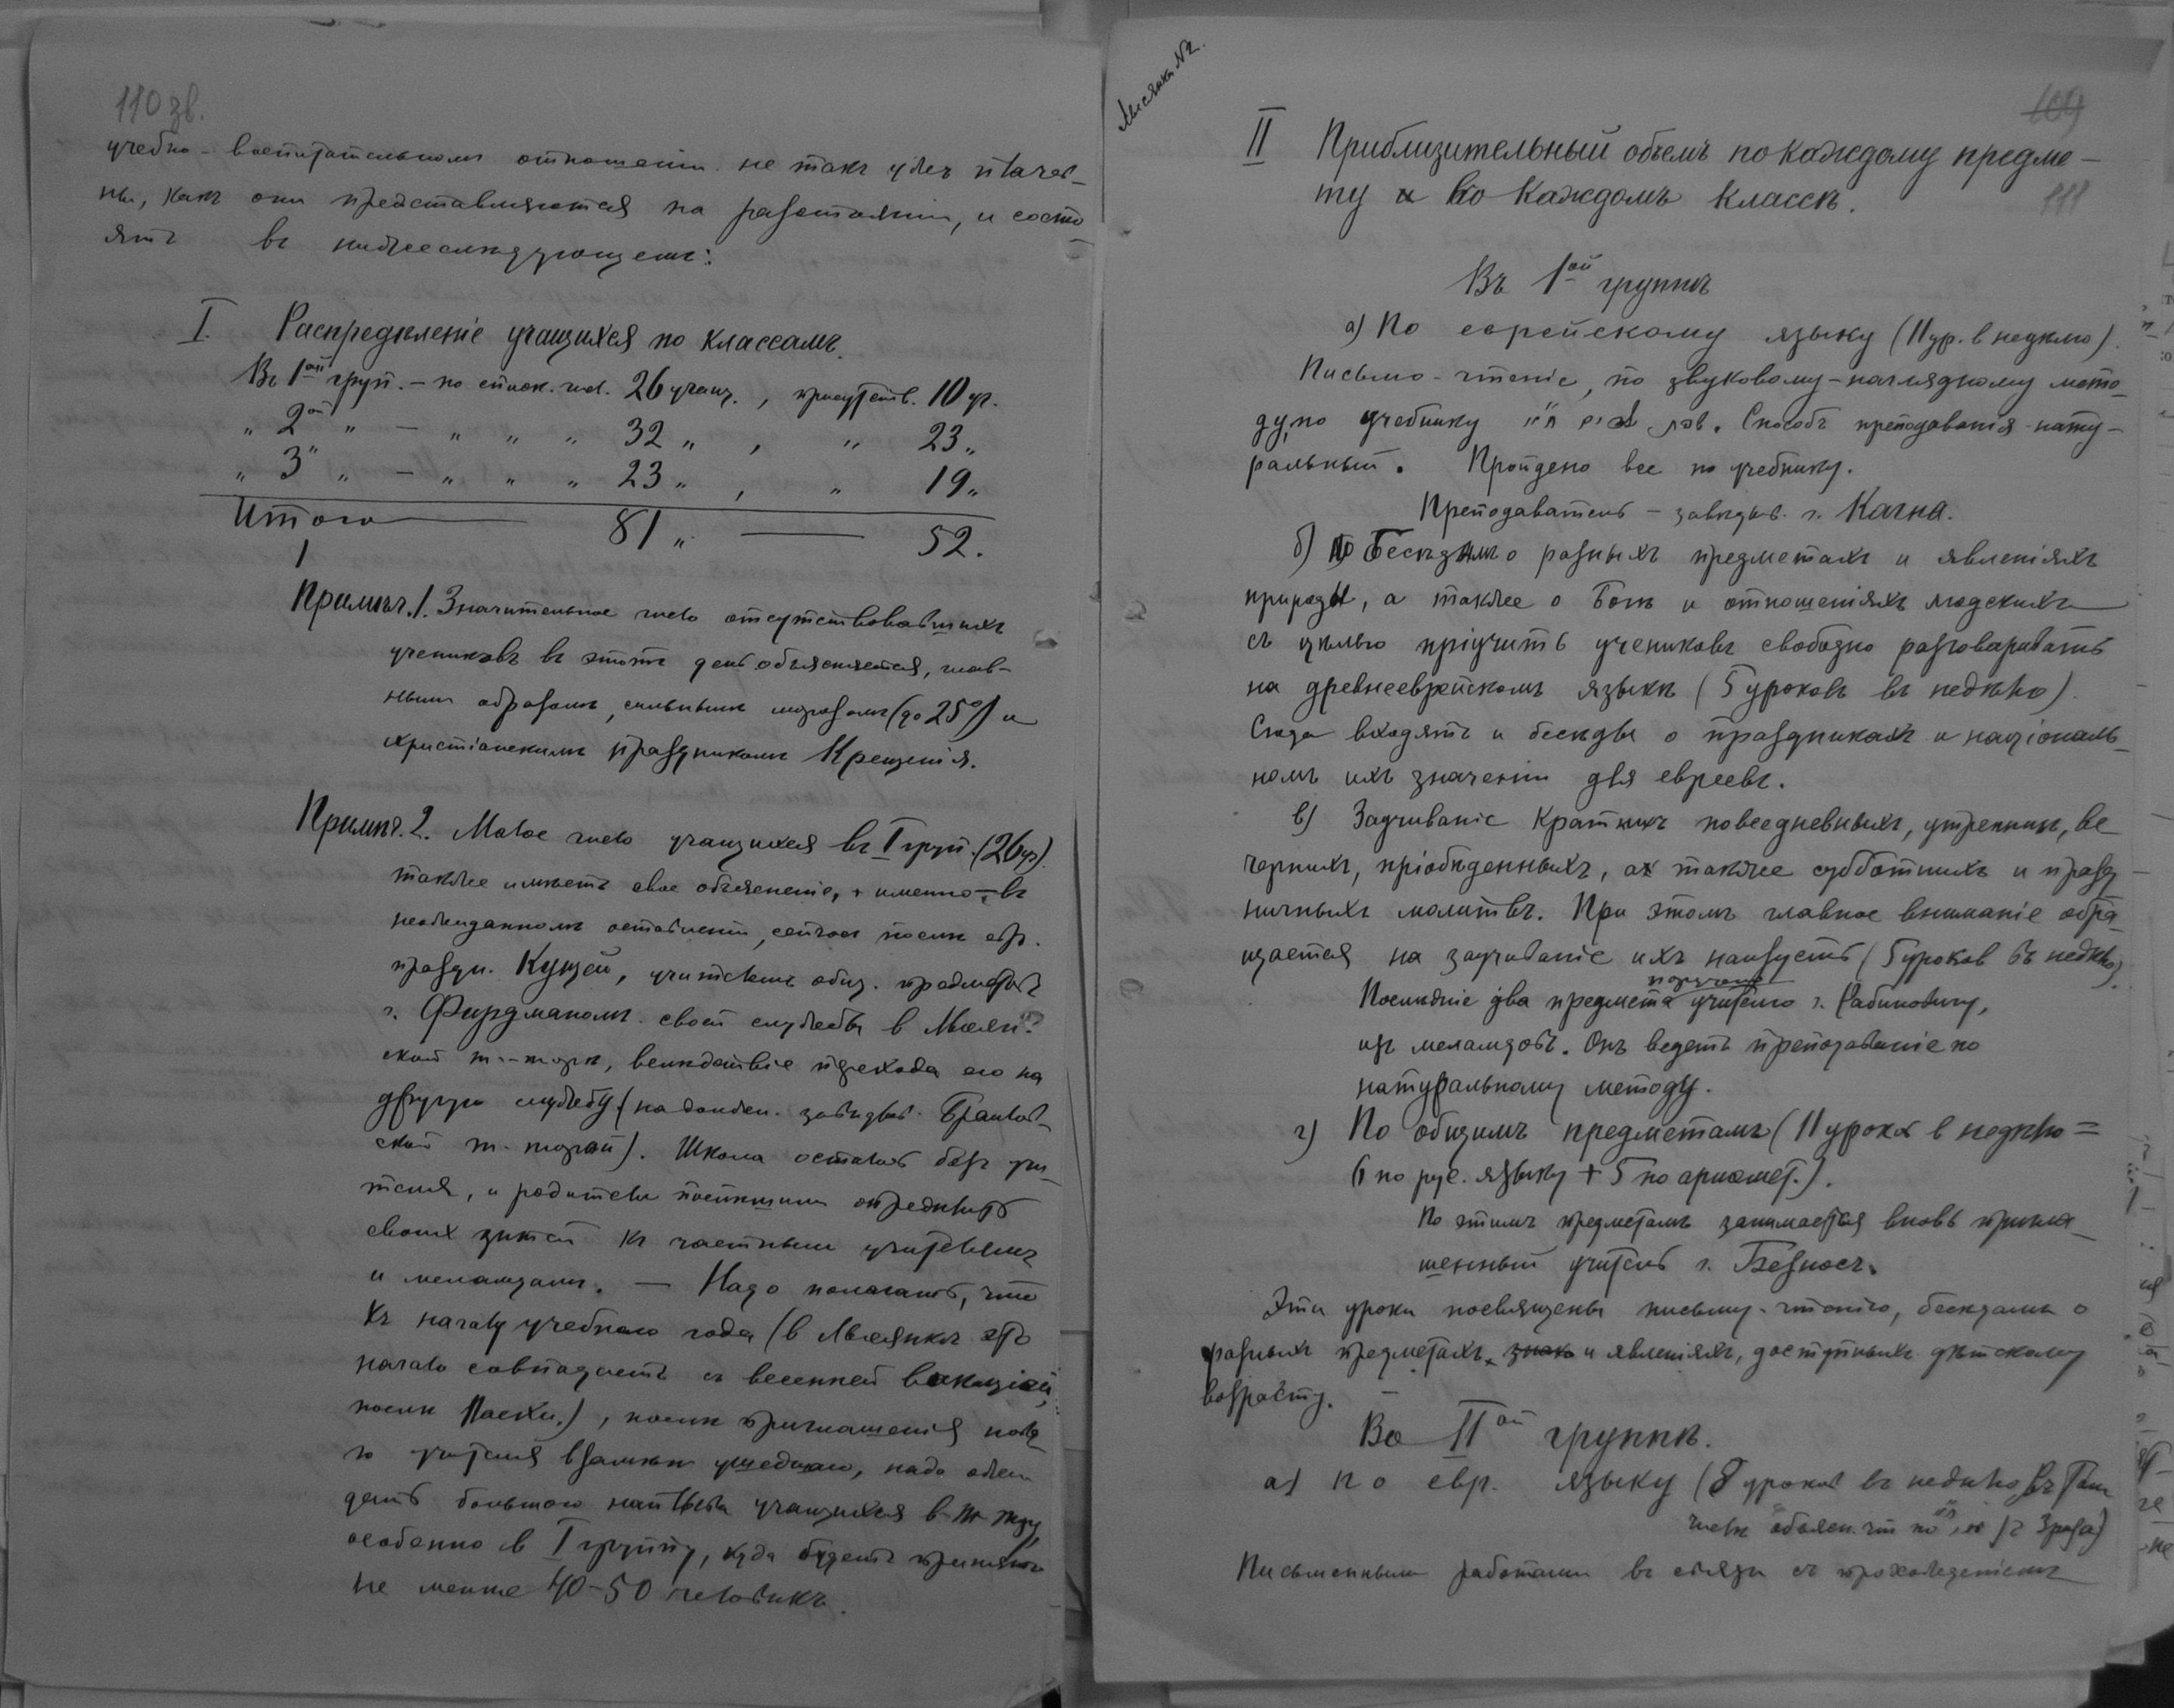 110 зв.
учебно-воспитательномъ отношеніи не такъ ужъ плачев-
ны, какъ они представляются на разстояніи, и состо
ятъ въ нижеслѣдующемъ:
I. Распредѣленіе учащихся по классамъ.
Въ 1ой груп. – по списк. числ. 26 учащ., присутств. 10 уч.
" 2ой " – " " " 32 " , " 23 "
" 3" " – " " " 23 " , " 19 "
Итого 81 " — 52.
Примѣч. 1. Значительное число отсутствовавшихъ
учениковъ въ этотъ день объясняется, глав-
нымъ образомъ, сильнымъ морозомъ (до 25°) и
христіанскимъ праздникомъ Крещенія.
Примѣч. 2. Малое число учащихся въ I груп. (26 уч.)
также имѣетъ свое объясненіе, и именно – въ
неожиданномъ оставленіи, сейчасъ послѣ евр.
праздн. Кущей, учителемъ общ. предметовъ
г. Фурдманомъ своей службы в Лысян-
ской т.-торѣ, вслѣдствіе перехода его на
другую службу (на должн. завѣдыв.
ской т-торой). Школа осталась безъ учи-
теля, и родители поспѣшили опредѣлить
своих дѣтей къ частнымъ учителямъ
и меламдамъ. — Надо полагать, что
къ началу учебного года (в Лысянкѣ это
начало совпадаетъ съ весенней вакаціей,
послѣ Пасхи.), послѣ приглашенія ново
го учителя взамѣнъ ушедшаго, надо ожи
дать большого наплыва учащихся в т-тору,
особенно в I группу, куда будетъ принято
не менше 40-50 человѣкъ.
Лысянка №2.
109
111
II Приблизительный объемъ по каждому предме-
ту и во каждомъ классѣ.
Въ 1ой группѣ
а) По еврейскому языку (11 ур. в недѣлю).
Письмо-чтеніе, по звуковому-наглядному мето-
ду, по учебнику Способъ преподаванія нату-
ральный. Пройдено все по учебнику.
Преподаватель – завѣдыв. г. Кагна.
б) Бесѣдамъ о разныхъ предметахъ и явленіяхъ
природы, а также о Богѣ и отношеніяхъ людскихъ
съ цѣлью пріучить учениковъ свободно разговаривать
на древнееврейскомъ языкѣ (5 уроковъ въ недѣлю).
Сюда входятъ и бесѣды о праздникахъ и націоналъ-
номъ ихъ значеніи для евреевъ.
в) Заучиваніе краткихъ повседневныхъ, утреннихъ, ве
чернихъ, пріобѣденныхъ, а также субботнихъ и празд
ничныхъ молитвъ. При этомъ главное вниманіе обра-
щается на заучиваніе ихъ наизусть (5 уроков въ недѣлю).
поручено
Послѣдніе два предмета учителю г. Рабиновичу,
изъ меламдовъ. Онъ ведетъ преподаваніе по
натуральному методу.
г) По общимъ предметамъ (11 урокъ в недѣлю =
6 по рус. языку + 5 по ариѳмет.).
По этимъ предметамъ занимается вновь пригла-
шенный учитель г. Безносъ.
Эти уроки посвящены письму-чтенію, бесѣдамъ о
разныхъ предметахъ и явленіяхъ, доступныхъ дѣтскому
возрасту.
Во IIой группѣ.
а) по евр. языку (8 уроков въ недѣлю, въ том
числѣ объясн. чт. по 3 раза)
Письменными работами въ связи съ прохожденіемъ